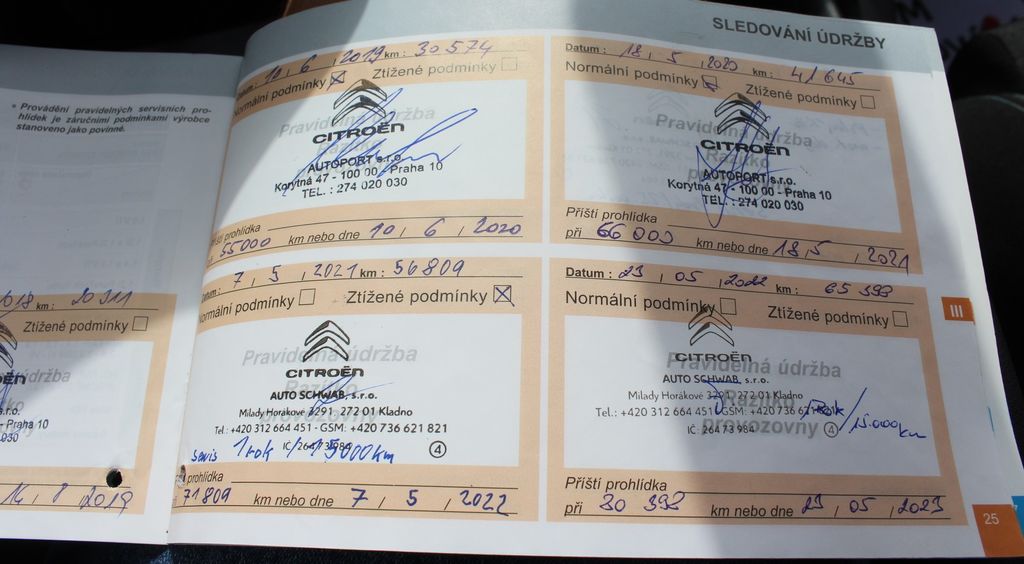 SLEDOVÁNÍ ÚDRŽBY
* Provádění pravidelných servisních pro-
hlídek je záručními podmínkami výrobce
stanoveno jako povinné.
20 311
Ztížené podmínky
údržba
s.r.o.
- Praha 10
14 , 8 , 2019
Datum : 10 , 6 , 2019 km : 30 574
Normální podmínky ☒ Ztížené podmínky ☐
Pravidelná údržba
CITROËN
AUTOPORT s.r.o.
Korytná 47 - 100 00 - Praha 10
TEL. : 274 020 030
Příští prohlídka
55000 km nebo dne 10 , 6 , 2020
Datum : 18 , 5 , 2020 km : 41 645
Normální podmínky ☒ Ztížené podmínky ☐
Pravidelná údržba
CITROËN
Razítko
AUTOPORT s.r.o.
Korytná 47 - 100 00 - Praha 10
TEL. : 274 020 030
Příští prohlídka
při 66 000 km nebo dne 18 , 5 , 2021
Datum : 7 , 5 , 2021 km : 56 809
Normální podmínky ☐ Ztížené podmínky ☒
Pravidelná údržba
CITROËN
Razítko
AUTO SCHWAB, s.r.o.
Milady Horákové 3291, 272 01 Kladno
provozovny
Tel.: +420 312 664 451 - GSM: +420 736 621 821
IČ: 264 73 984
④
servis 1 rok / 15000 km
prohlídka
71 809 km nebo dne 7 , 5 , 2022
Datum : 23 , 05 , 2022 km : 65 393
Normální podmínky ☐ Ztížené podmínky ☐
CITROËN
Pravidelná údržba
AUTO SCHWAB, s.r.o.
Razítko
Milady Horákové 3291, 272 01 Kladno
Tel.: +420 312 664 451 - GSM: +420 736
provozovny
IČ: 264 73 984
④
1 rok / 15.000 km
Příští prohlídka
při 80 393 km nebo dne 23 , 05 , 2023
III
25